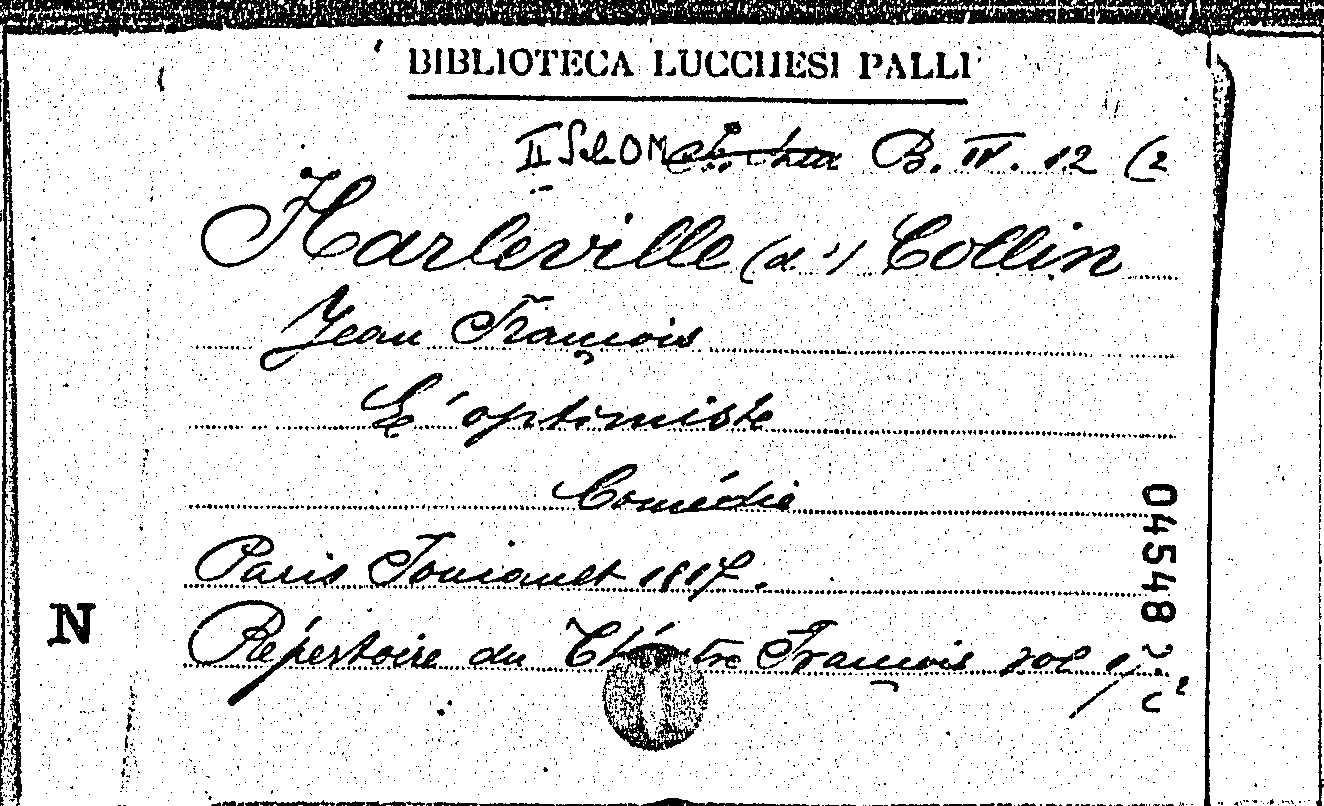 BIBLIOTECA LUCCHESI PALLI
II Sala OM B. IV. 12 (2
Harleville (d') Collin
Jean François
L'optimiste
Comédie
Paris 1817.
Répertoire du Théâtre François vol
04548
N